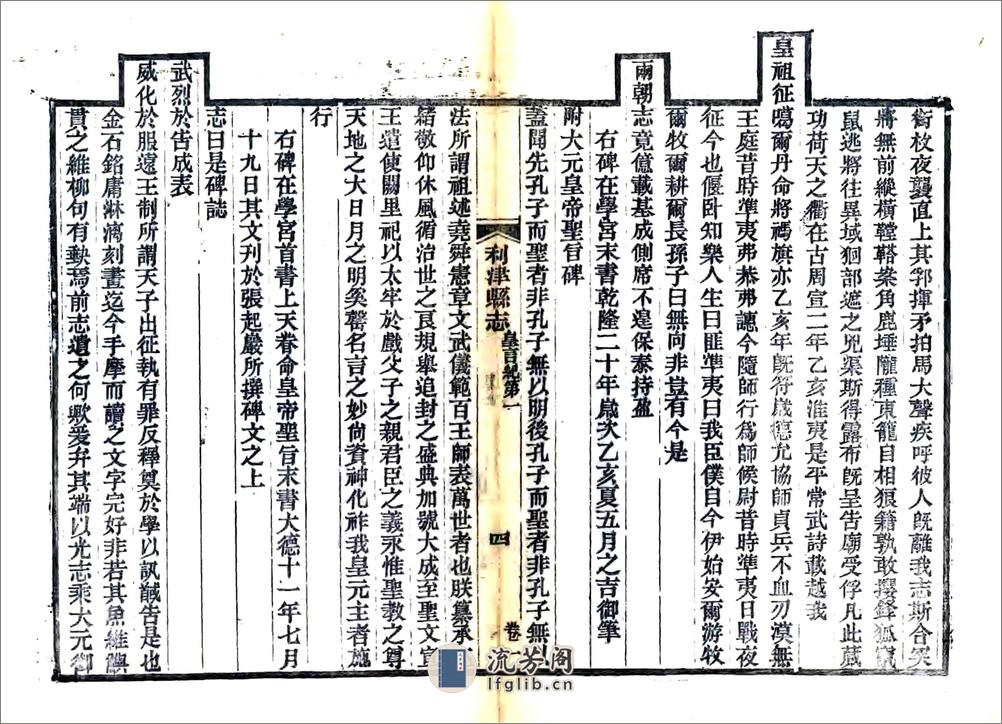 銜枚夜襲直上其郛揮矛拍馬大聲疾呼彼人旣離我志斯合突
將無前縱橫鞺鞳案角鹿埵隴種東籠自相狼籍孰敢攖鋒狐竄
鼠逃將往異域徊部遮之兇渠斯得露布旣呈告廟受俘凡此葳
功荷天之衢在古周宣二年乙亥淮夷是平常武詩載越我
皇祖征噶爾丹命將禡旗亦乙亥年旣符歲德允協師貞兵不血刃漠無
王庭昔時準夷弗恭弗譓今隨師行爲師候尉昔時準夷日戰夜
征今也偃卧知樂人生曰匪準夷曰我臣僕自今伊始安爾游牧
爾牧爾耕爾長孫子曰無向非豈有今是
兩朝志竟億載基成側席不遑保泰持盈
右碑在學宮末書乾隆二十年歲次乙亥夏五月之吉御筆
附大元皇帝聖旨碑
蓋聞先孔子而聖者非孔子無以明後孔子而聖者非孔子無以
利津縣志
皇言紀第一
四
卷一
法所謂祖述堯舜憲章文武儀範百王師表萬世者也朕纂承丕
緒敬仰休風循治世之良規舉追封之盛典加號大成至聖文宣
王遣使闕里祀以太牢於戲父子之親君臣之義永惟聖教之尊
天地之大日月之明奚罄名言之妙尙資神化祚我皇元主者施
行
右碑在學宮首書上天眷命皇帝聖旨末書大德十一年七月
十九日其文刊於張起巖所撰碑文之上
志曰是碑誌
武烈於告成表
威化於服遠王制所謂天子出征執有罪反釋奠於學以訊馘告是也
金石銘庸淋漓刻畫迄今手摩而讀之文字完好非若其魚維鱮
貫之維柳句有缺焉前志遺之何歟爰弁其端以光志乘大元御
流芳阁
lfglib.cn